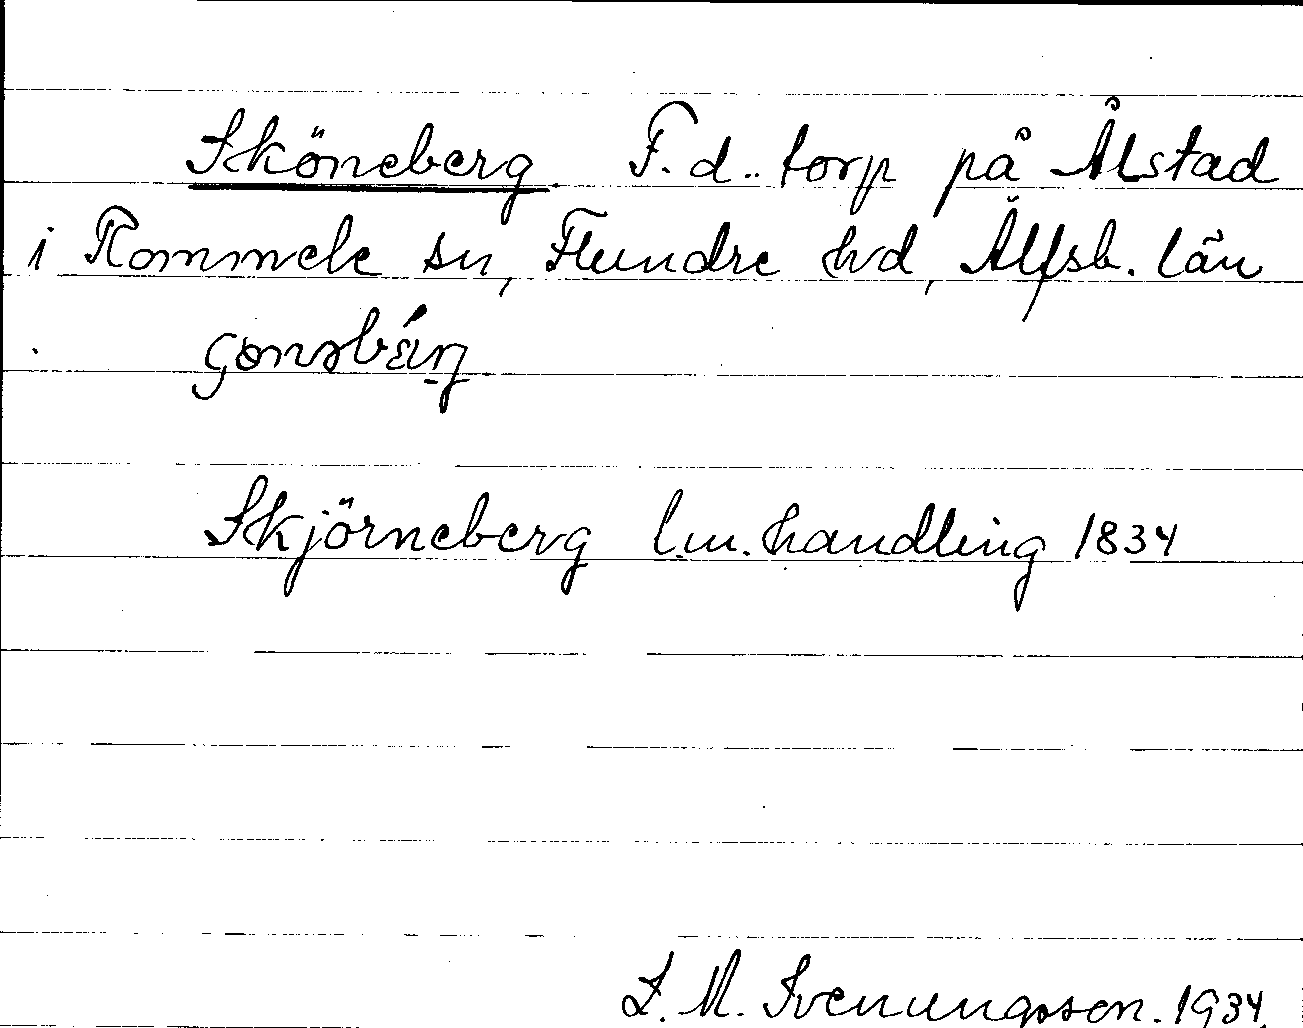 Sköneberg F.d. torp på Ålstad
i Rommele sn, Flundre hd, Älfsb. län
Skjörneberg l.m. handling 1834
S. M. Svenungsson. 1934.